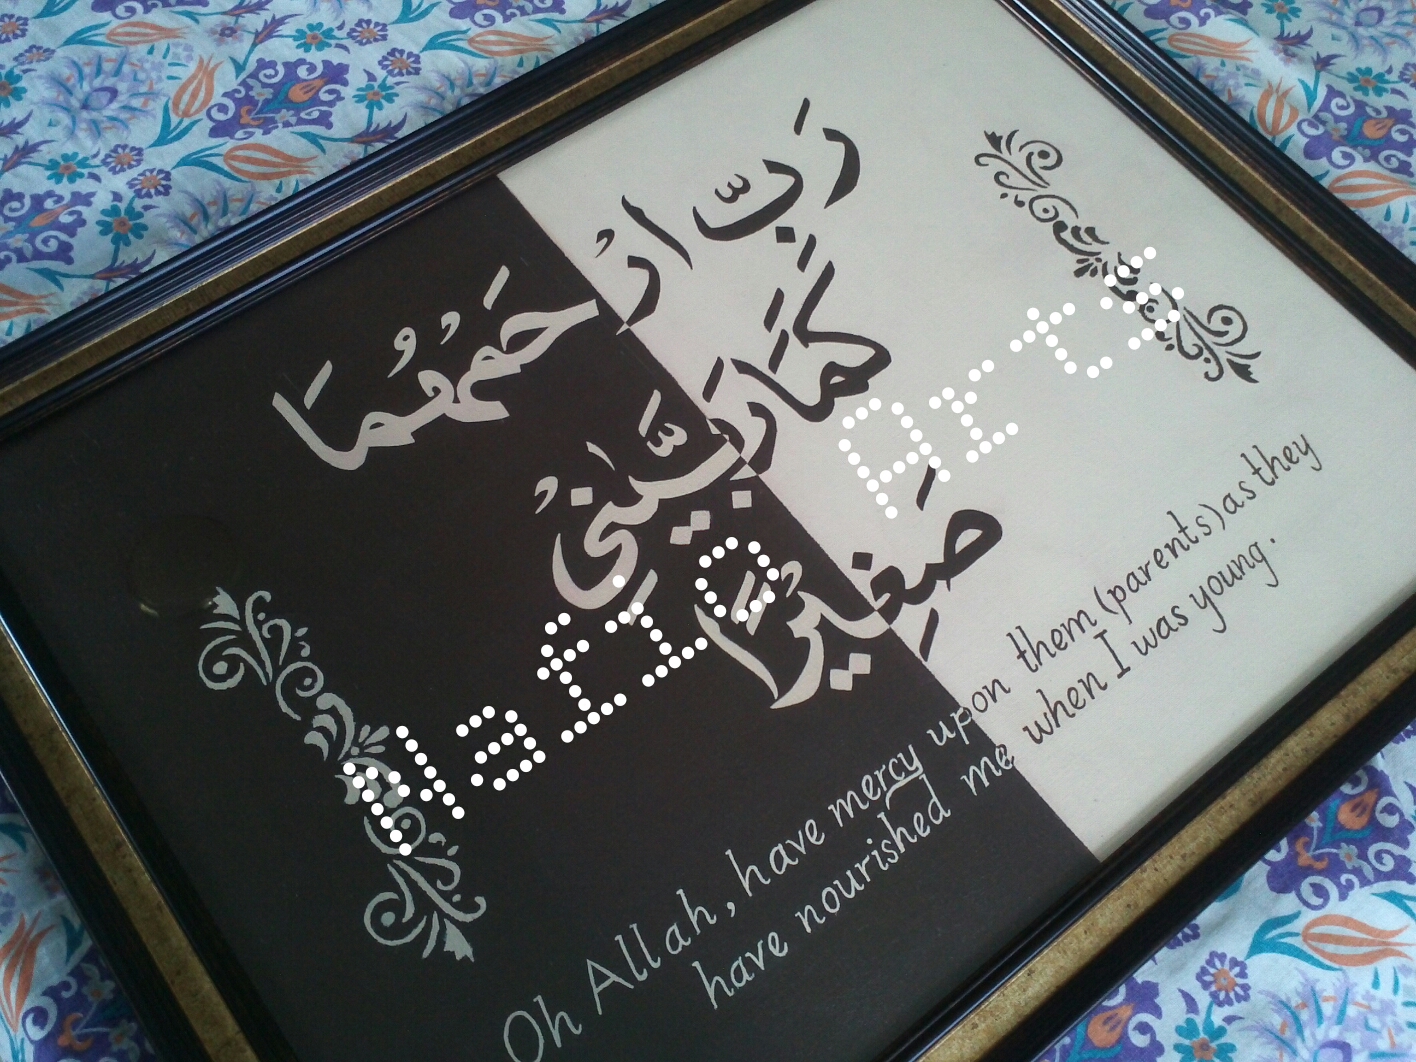 رَبِّ ارْحَمْهُمَا
كَمَا رَبَّيَانِيْ
صَغِيْرًا
Oh Allah, have mercy upon them (parents) as they
have nourished me when I was young.